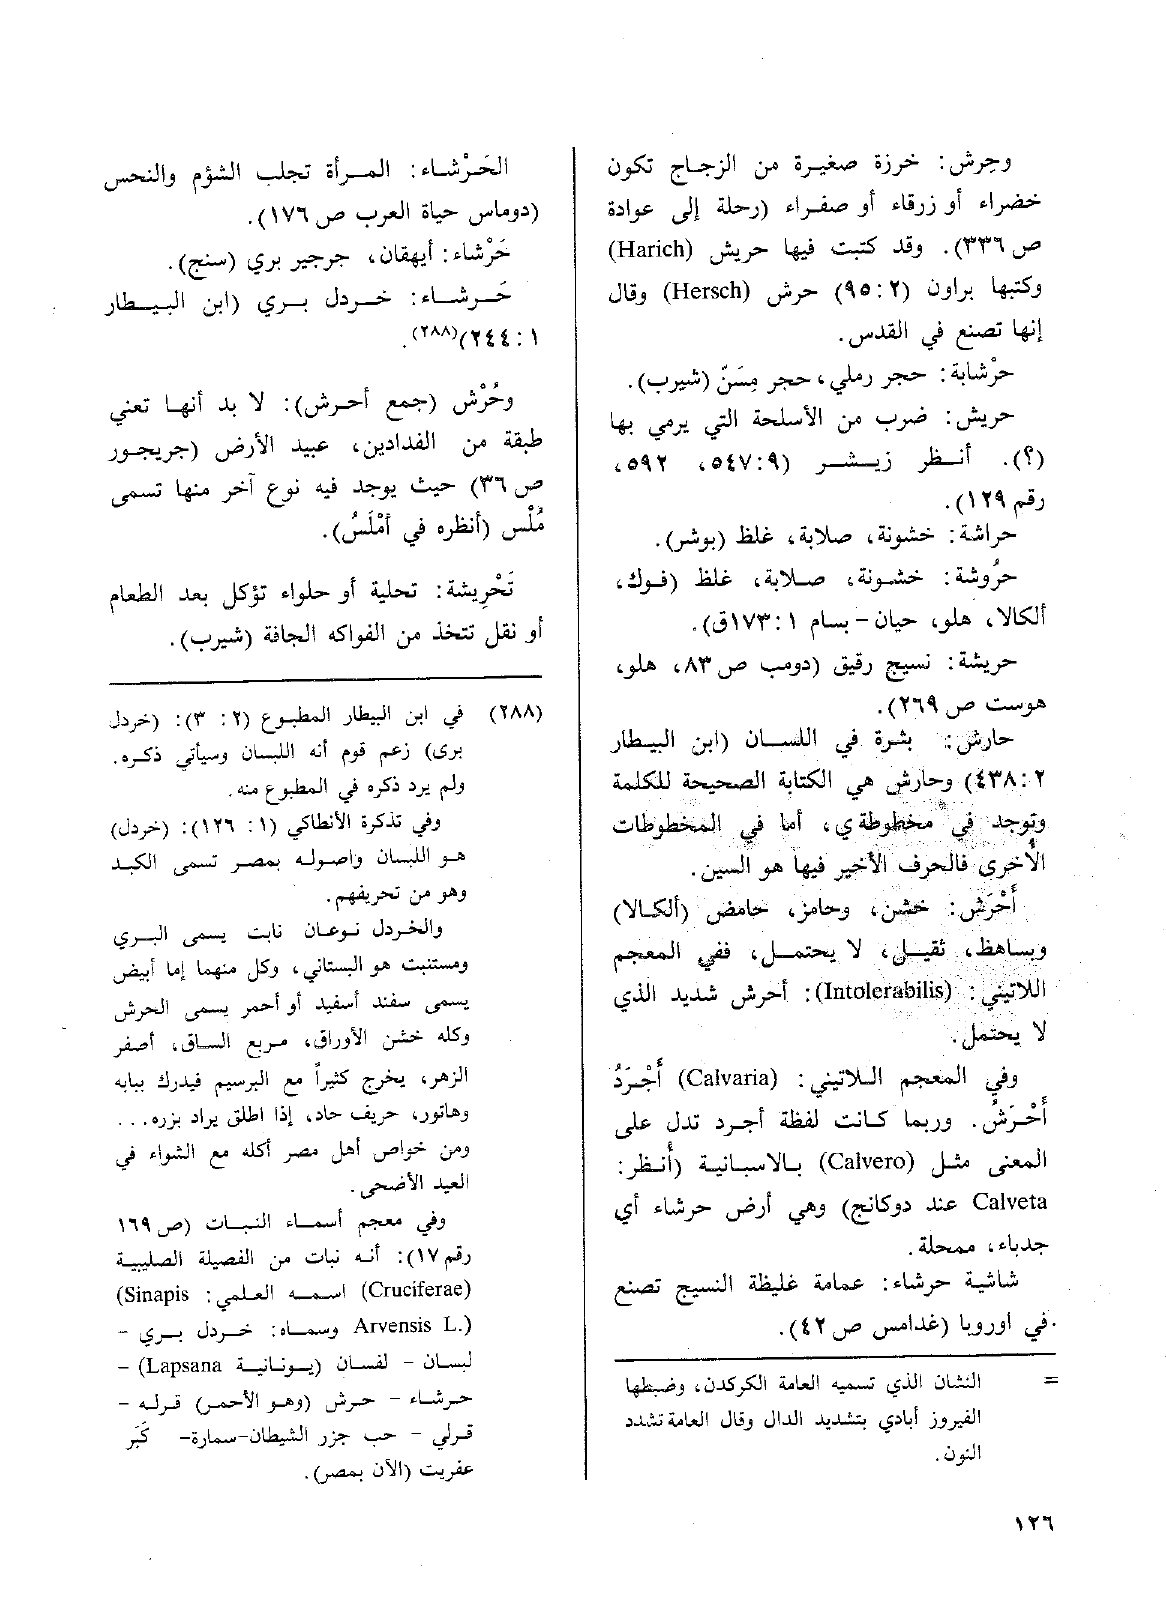 وحِرش: خرزة صغيرة من الزجاج تكون
خضراء أو زرقاء أو صفراء (رحلة إلى عوادة
ص ٣٣٦). وقد كتبت فيها حريش (Harich)
وكتبها براون (٢: ٩٥) حرش (Hersch) وقال
إنها تصنع في القدس.
حرْشابة: حجر رملي، حجر مِسَنّ (شيرب).
حريش: ضرب من الأسلحة التي يرمي بها
(؟). أنظر زيشر (٩: ٥٤٧، ٥٩٢،
رقم ١٢٩).
حراشة: خشونة، صلابة، غلظ (بوشر).
حرُوشة: خشونة، صلابة، غلظ (فوك،
ألكالا، هلو، حيان - بسام ١: ١٧٣ق).
حريشة: نسيج رقيق (دومب ص ٨٣، هلو،
هوست ص ٢٦٩).
حارش: بثرة في اللسان (ابن البيطار
٢: ٤٣٨) وحارش هي الكتابة الصحيحة للكلمة
وتوجد في مخطوطة ي، أما في المخطوطات
الأخرى فالحرف الأخير فيها هو السين.
أَحْرَش: خشن، وحامز، حامض (ألكالا)
وبساهظ، ثقيل، لا يحتمل، ففي المعجم
اللاتيني: (Intolerabilis): أحرش شديد الذي
لا يحتمل.
وفي المعجم اللاتيني: (Calvaria) أَجْرَدُ
أَحْرَشُ. وربما كانت لفظة أجرد تدل على
المعنى مثل (Calvero) بالاسبانية (أنظر:
Calveta عند دوكانج) وهي أرض حرشاء أي
جدباء، ممحلة.
شاشية حرشاء: عمامة غليظة النسيج تصنع
في اوروبا (غدامس ص ٤٢).
= النشان الذي تسميه العامة الكركدن، وضبطها
الفيروز أبادي بتشديد الدال وقال العامة تشدد
النون.
الحَرْشاء: المرأة تجلب الشؤم والنحس
(دوماس حياة العرب ص ١٧٦).
حَرْشاء: أيهقان، جرجير بري (سنج).
حَرشاء: خردل بري (ابن البيطار
١: ٢٤٤)(٢٨٨).
وحُرْش (جمع أحرش): لا بد أنها تعني
طبقة من الفدادين، عبيد الأرض (جريجور
ص ٣٦) حيث يوجد فيه نوع آخر منها تسمى
مُلْس (أنظره في أمْلَسُ).
تَحْرِيشة: تحلية أو حلواء تؤكل بعد الطعام
أو نقل تتخذ من الفواكه الجافة (شيرب).
(٢٨٨) في ابن البيطار المطبوع (٢: ٣): (خردل
برى) زعم قوم أنه اللبسان وسيأتي ذكره.
ولم يرد ذكره في المطبوع منه.
وفي تذكرة الأنطاكي (١: ١٢٦): (خردل)
هو اللبسان واصوله بمصر تسمى الكبد
وهو من تحريفهم.
والخردل نوعان نابت يسمى البري
ومستنبت هو البستاني، وكل منهما إما أبيض
يسمى سفند أسفيد أو أحمر يسمى الحرش
وكله خشن الأوراق، مربع الساق، أصفر
الزهر، يخرج كثيراً مع البرسيم فيدرك ببابه
وهاتور، حريف حاد، إذا اطلق يراد بزره...
ومن خواص أهل مصر أكله مع الشواء في
العيد الأضحى.
وفي معجم أسماء النبات (ص ١٦٩
رقم ١٧): أنه نبات من الفصيلة الصليبية
(Cruciferae) اسمه العلمي: (Sinapis
Arvensis L.) وسماه: خردل بري -
لبسان - لفسان (يونانية Lapsana) -
حرشاء - حرش (وهو الأحمر) قرله -
قرلي - حب جزر الشيطان - سمارة - كَبَر
عفريت (الآن بمصر).
١٢٦